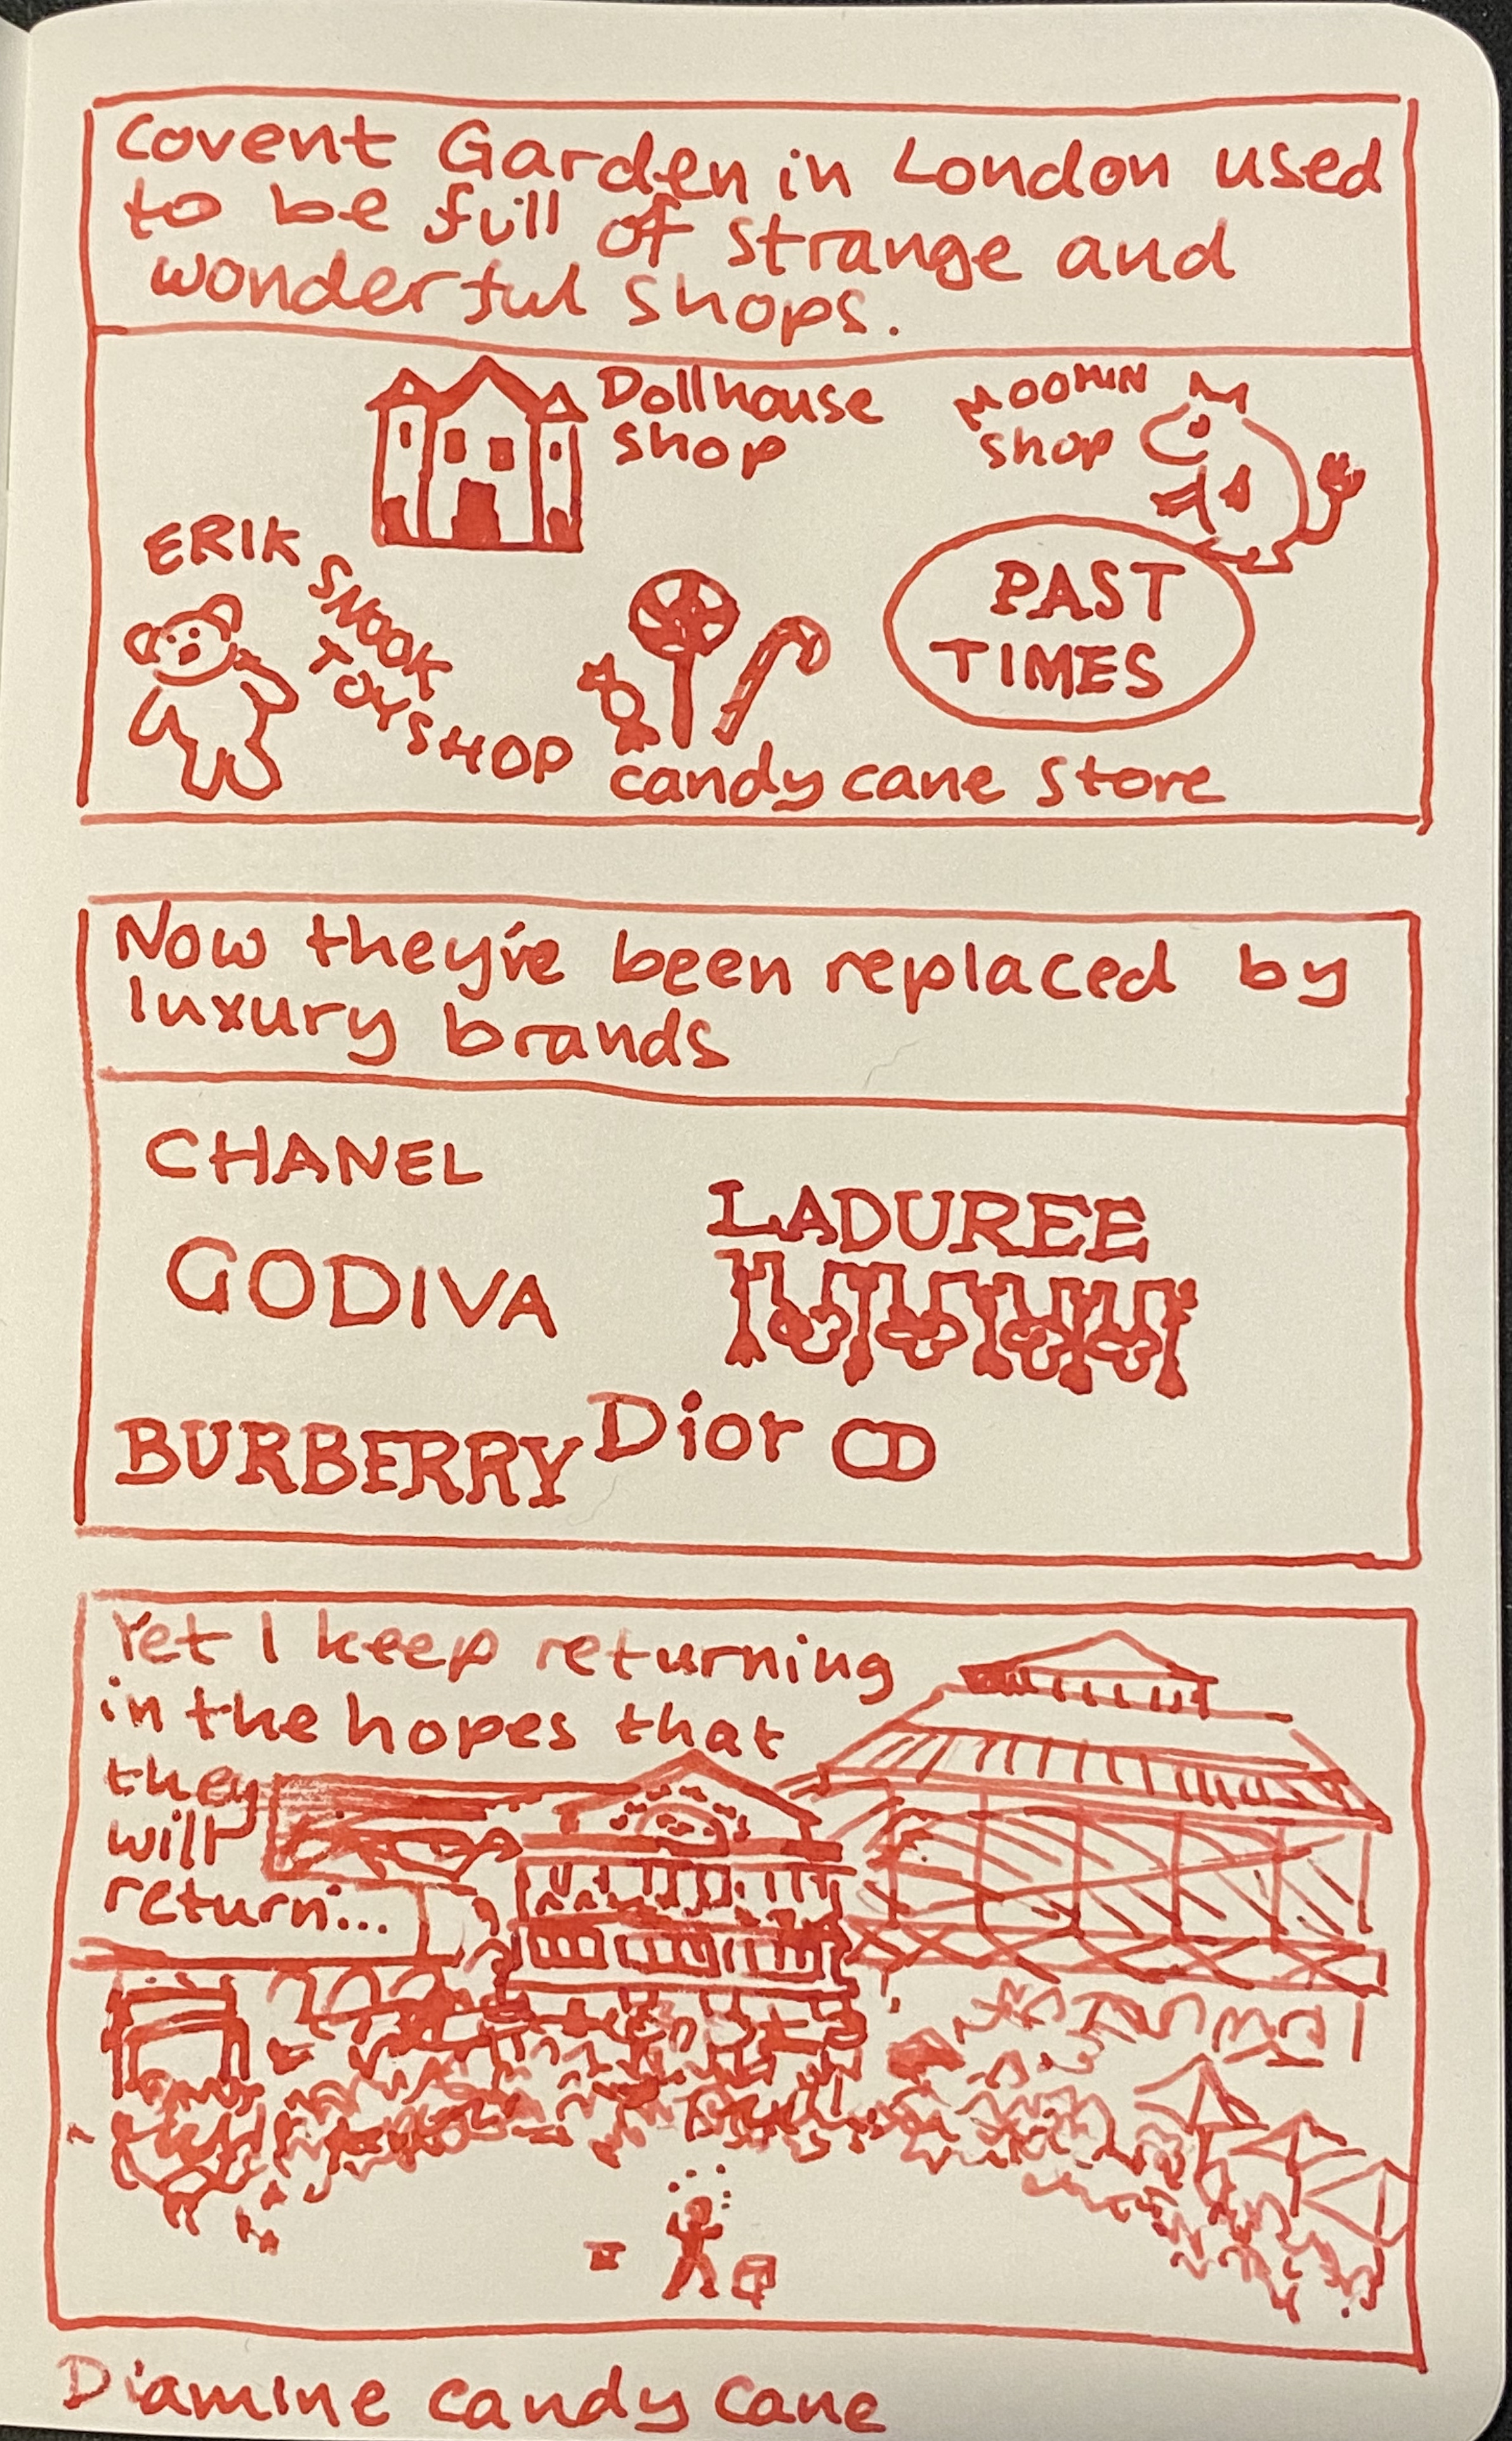 Covent Garden in London used
to be full of strange and
wonderful shops.
Dollhouse
shop
MOOMIN
shop
ERIK
SNOOK
TOYSHOP
PAST
TIMES
candy cane store
Now they've been replaced by
luxury brands
CHANEL
LADUREE
GODIVA
BURBERRY
Dior CD
Yet I keep returning
in the hopes that
they
will
return...
Diamine candy cane